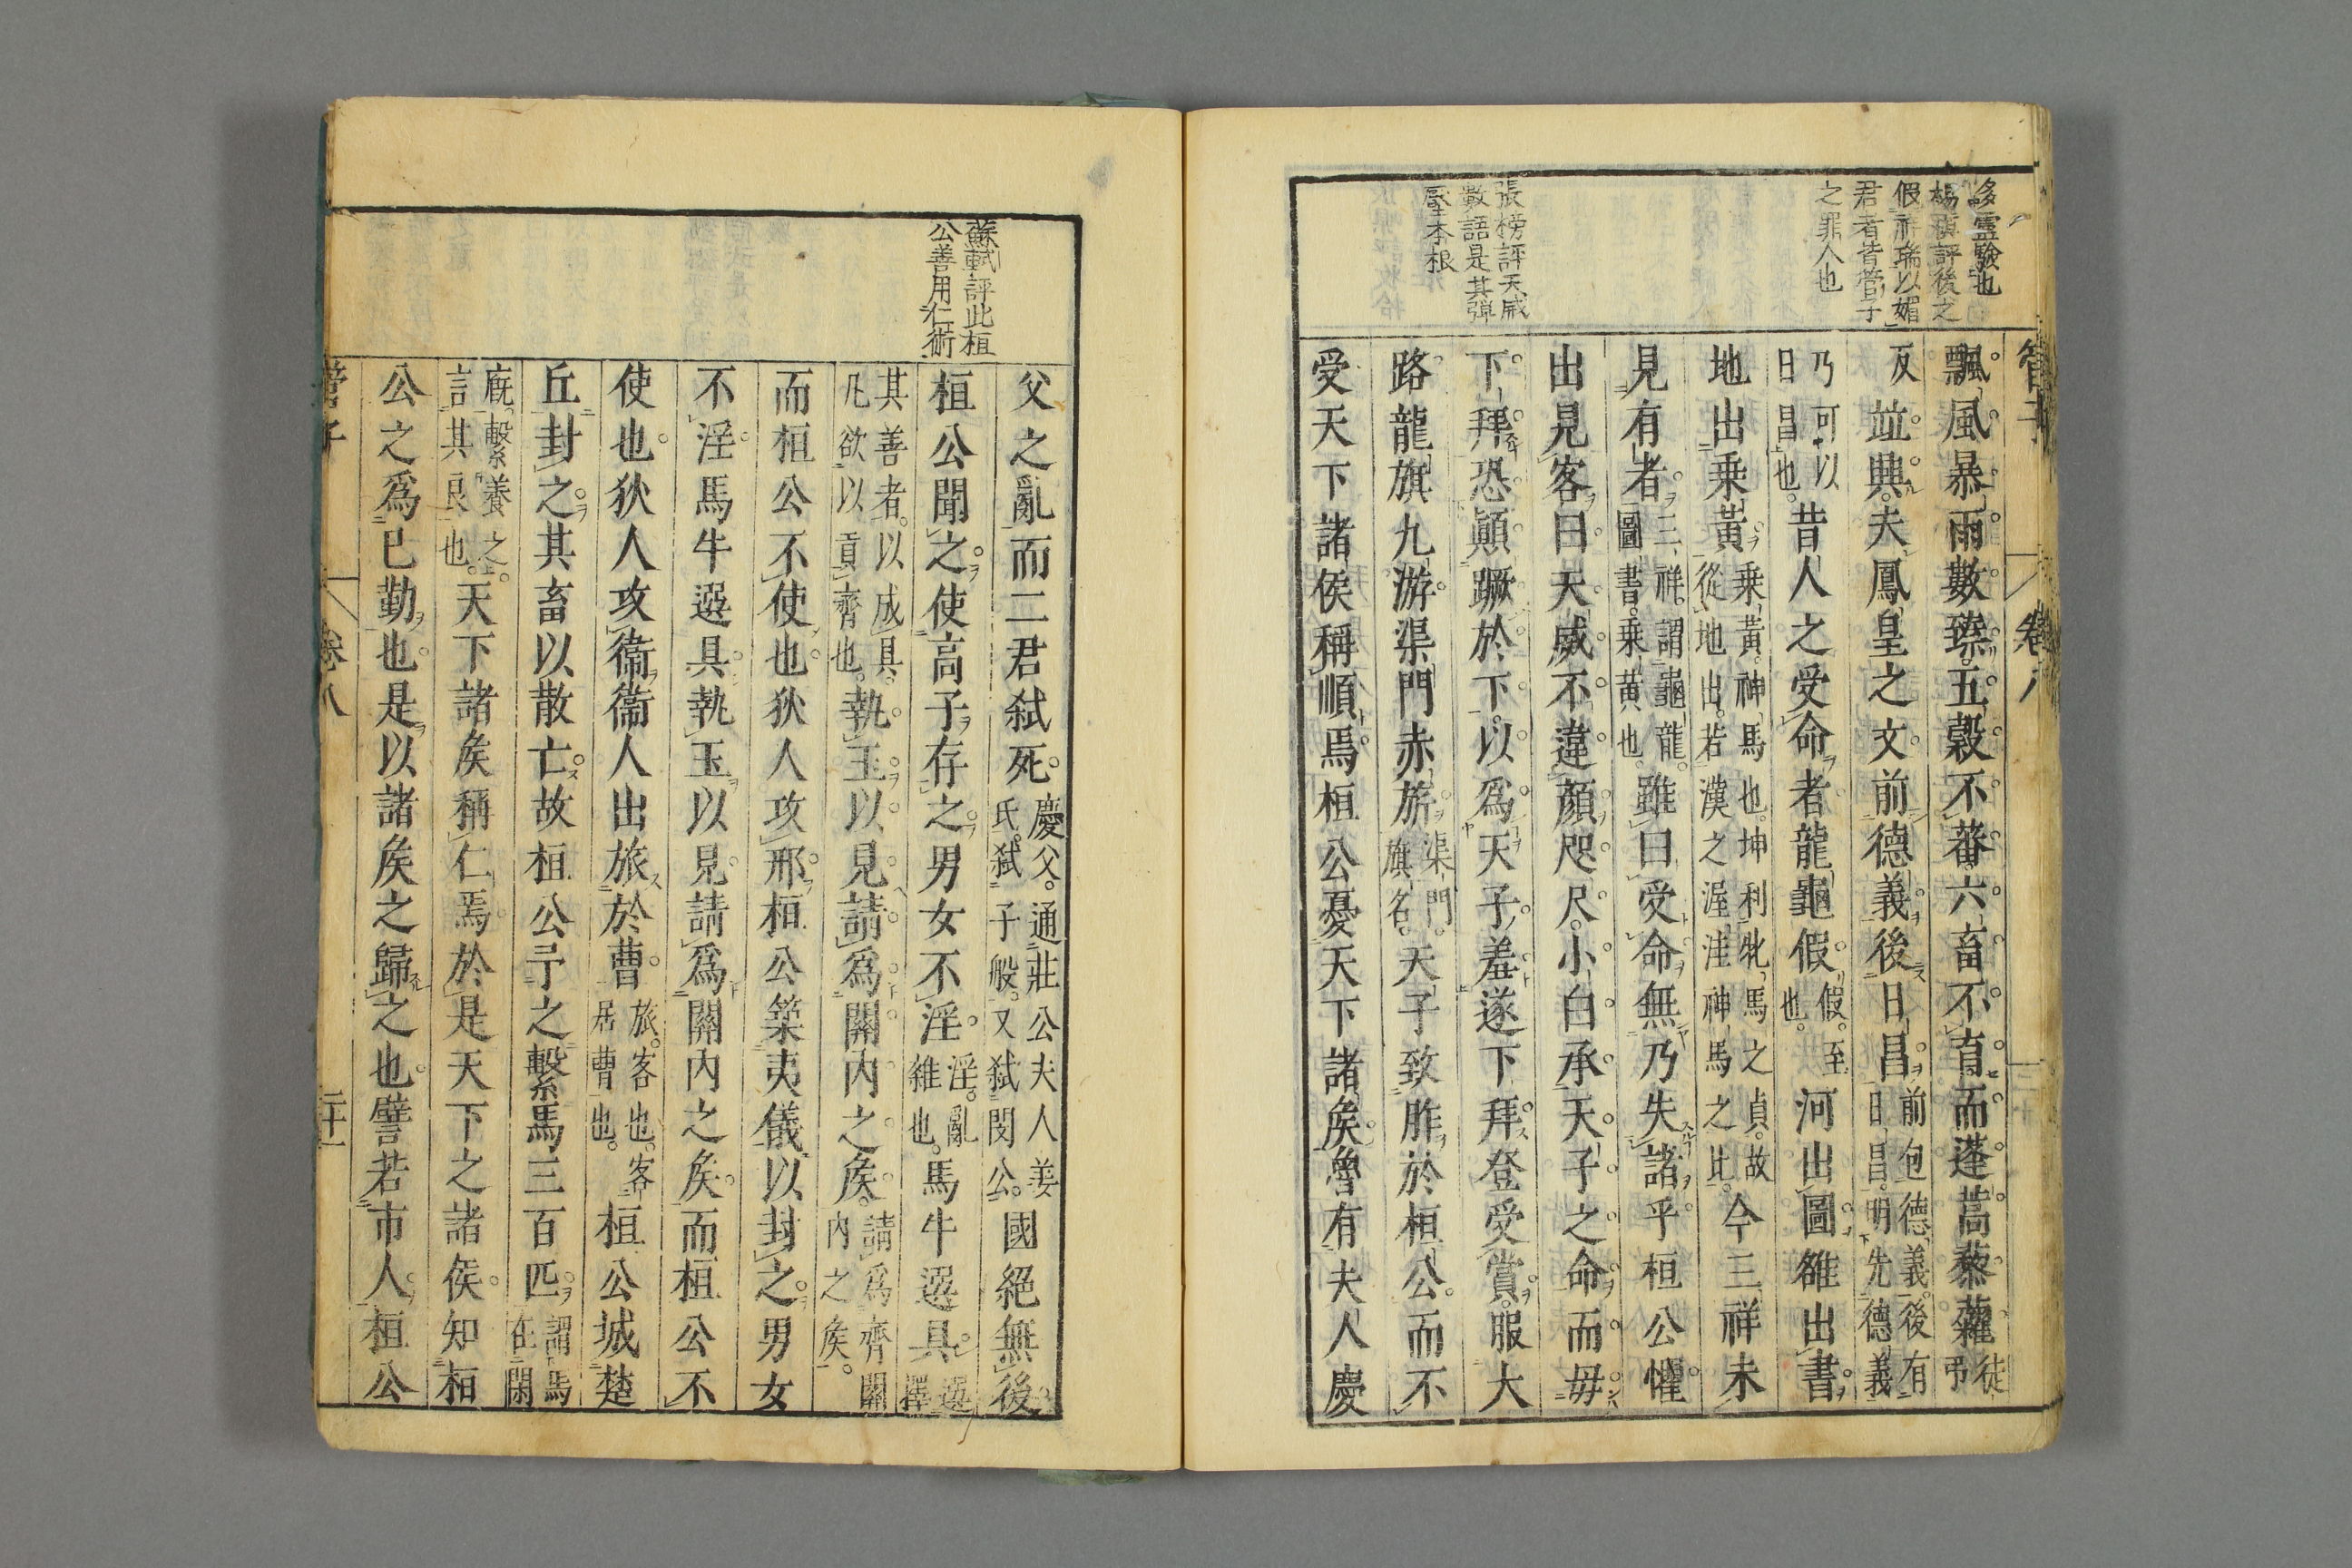 管子
卷八
侈靈驗也
楊慎評後之
假祥瑞以媚
君者皆管子
之罪人也
張榜評天威
數語是其彈
壓本根
飄風暴雨數臻五穀不蕃六畜不育而蓬蒿藜藿徒弔
反並興夫鳳皇之文前德義後日昌前包德義後有日昌明先德義
乃可以日昌也昔人之受命者龍龜假假至也河出圖雒出書
地出乘黃乘黃神馬也坤利牝馬之貞故從地出若漢之渥洼神馬之比今三祥未
見有者三祥謂龜龍圖書乘黃也雖曰受命無乃失諸乎桓公懼
出見客曰天威不違顏咫尺小白承天子之命而毋
下拜恐顛蹶於下以爲天子羞遂下拜登受賞服大
路龍旗九游渠門赤旂渠門旗名天子致胙於桓公而不
受天下諸侯稱順焉桓公憂天下諸矦魯有夫人慶
蘇軾評此桓
公善用仁術
父之亂而二君弑死慶父通莊公夫人姜氏弑子般又弑閔公國絕無後
桓公聞之使高子存之男女不淫淫亂雜也馬牛選具選擇
其善者以成具凡欲以貢齊也執玉以見請爲關內之矦請爲齊關內之矦
而桓公不使也狄人攻邢桓公築夷儀以封之男女
不淫馬牛選具執玉以見請爲關內之矦而桓公不
使也狄人攻衞衞人出旅於曹旅客也客居曹也桓公城楚
丘封之其畜以散亡故桓公予之繫馬三百匹謂馬在閑
廐繫養之言其良也天下諸矦稱仁焉於是天下之諸侯知桓
公之爲已勤也是以諸矦之歸之也譬若市人桓公
管子
卷八
二十一